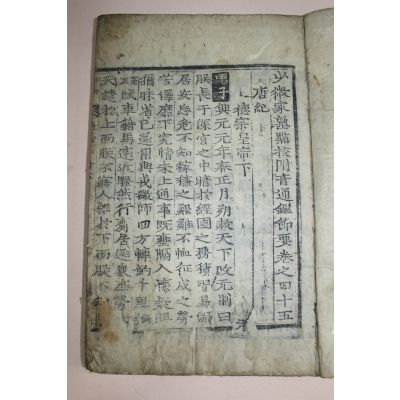 少微家塾點校附音通鑑節要卷之四十五
唐紀
德宗皇帝下
甲子興元元年春正月朔赦天下改元制曰
朕長于深宮之中暗於經國之務積習易溺
居安忘危不知稼穡之艱難不恤征戍之勞
苦澤靡下究情未上通事旣壅隔人懷疑阻
猶昧省已遂用興戎徵師四方轉餉千里
賦車籍馬遠近騷然行齎居送衆庶勞
天譴於上而朕不寤人怨於下而朕不